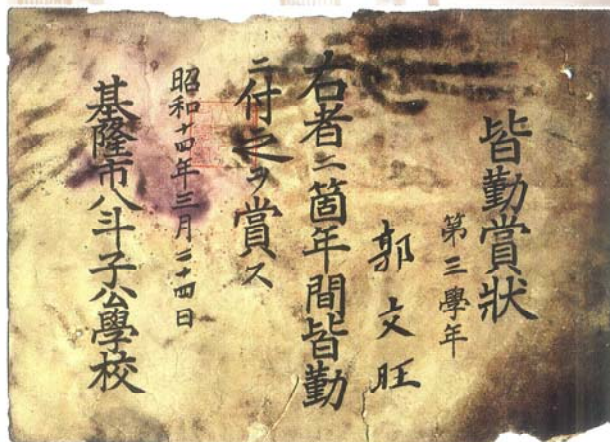 皆勤賞狀
第三學年
郭文旺
右者二箇年間皆勤
ニ付之ヲ賞ス
昭和十四年三月二十四日
基隆市八斗子公學校